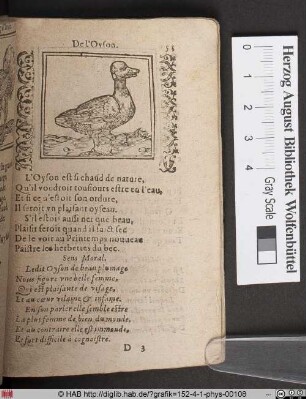 De l'Oyson.
L'Oyson est si chaud de nature,
Qu'il voudroit tousiours estre en l'eau,
Et si ce n'estoit son ordure,
Il seroit vn plaisant oyseau.
S'il estoit aussi net que beau,
Plaisir seroit quand il faict sec
De le voir au Printemps nouueau
Paistre les herbettes du bec.
Sens Moral.
Ledit Oyson de beau plumage
Nous figure vne belle femme,
Qui est plaisante de visage,
Et au cœur vilaine & infame.
En son parler elle semble estre
La plus femme de bien du monde,
Et au contraire elle est immunde,
Et fort difficile à cognoistre.
D 3
Herzog August Bibliothek Wolfenbüttel
0 1 2 3 4
Gray Scale
© HAB http://diglib.hab.de/?grafik=152-4-1-phys-00108